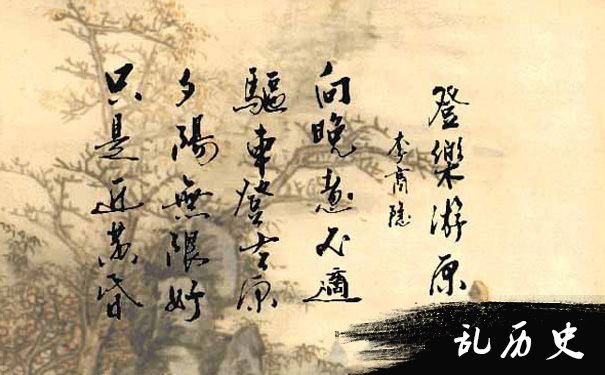 登樂游原
李商隱
向晚意不適
驅車登古原
夕陽無限好
只是近黃昏
乱历史